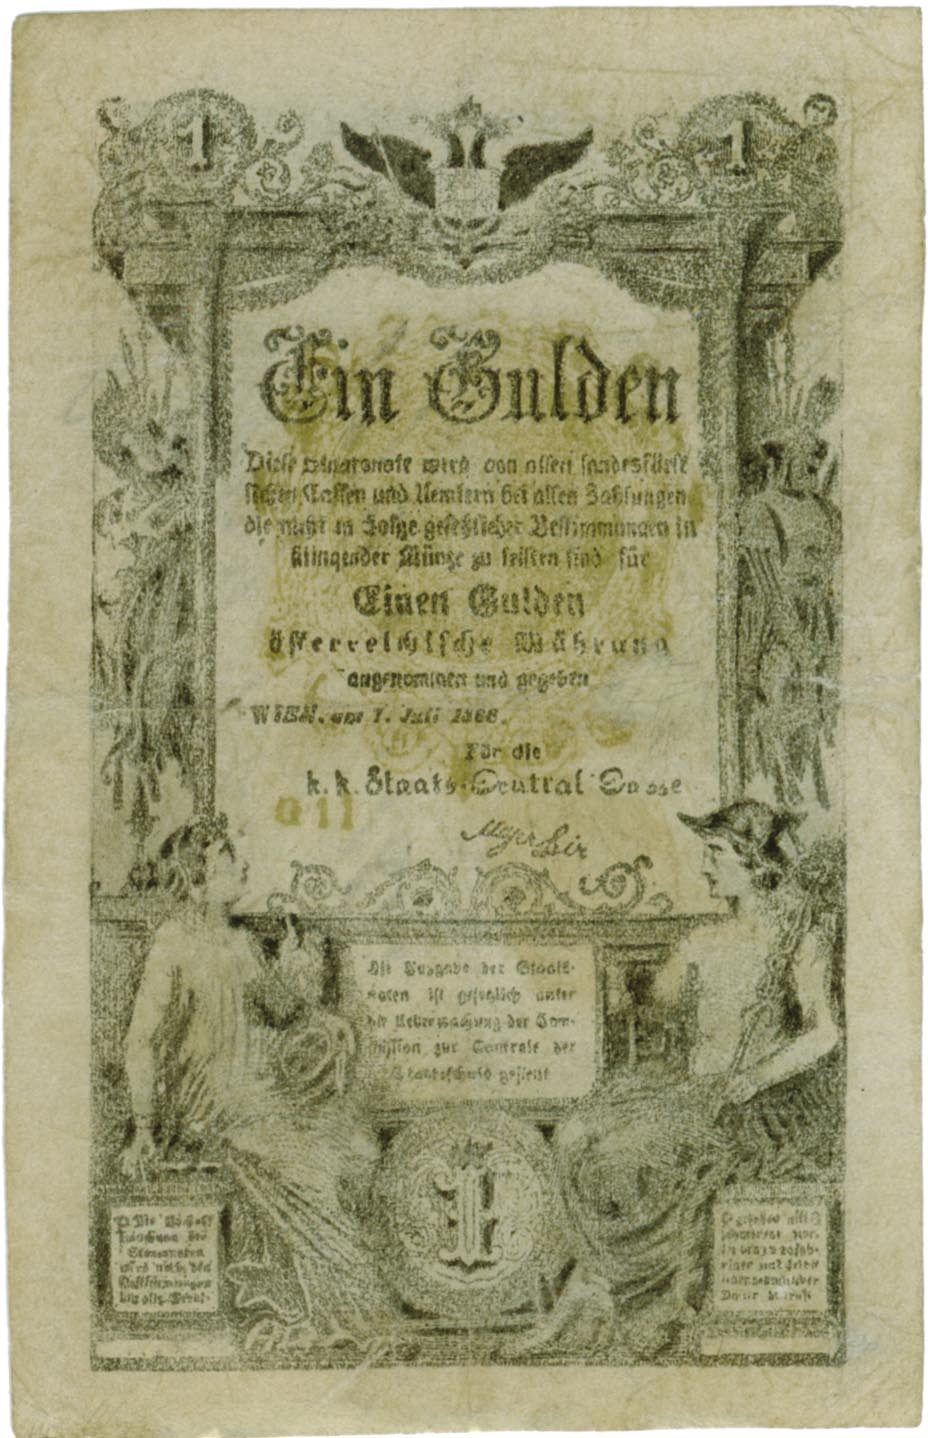 1 1
Ein Gulden
Diese Staatsnote wird von allen landesfürst
lichen Cassen und Aemtern bei allen Zahlungen
die nicht in Folge gesetzlicher Bestimmungen in
klingender Münze zu leisten sind für
Einen Gulden
österreichische Währung
angenommen und gegeben
WIEN, am 7. Juli 1866.
Für die
k. k. Staats-Central-Casse
Die Ausgabe der Staats-
noten ist gesetzlich unter
die Ueberwachung der Com-
mission zur Controle der
Staatsschuld gestellt
1
Die
der
wird nach den